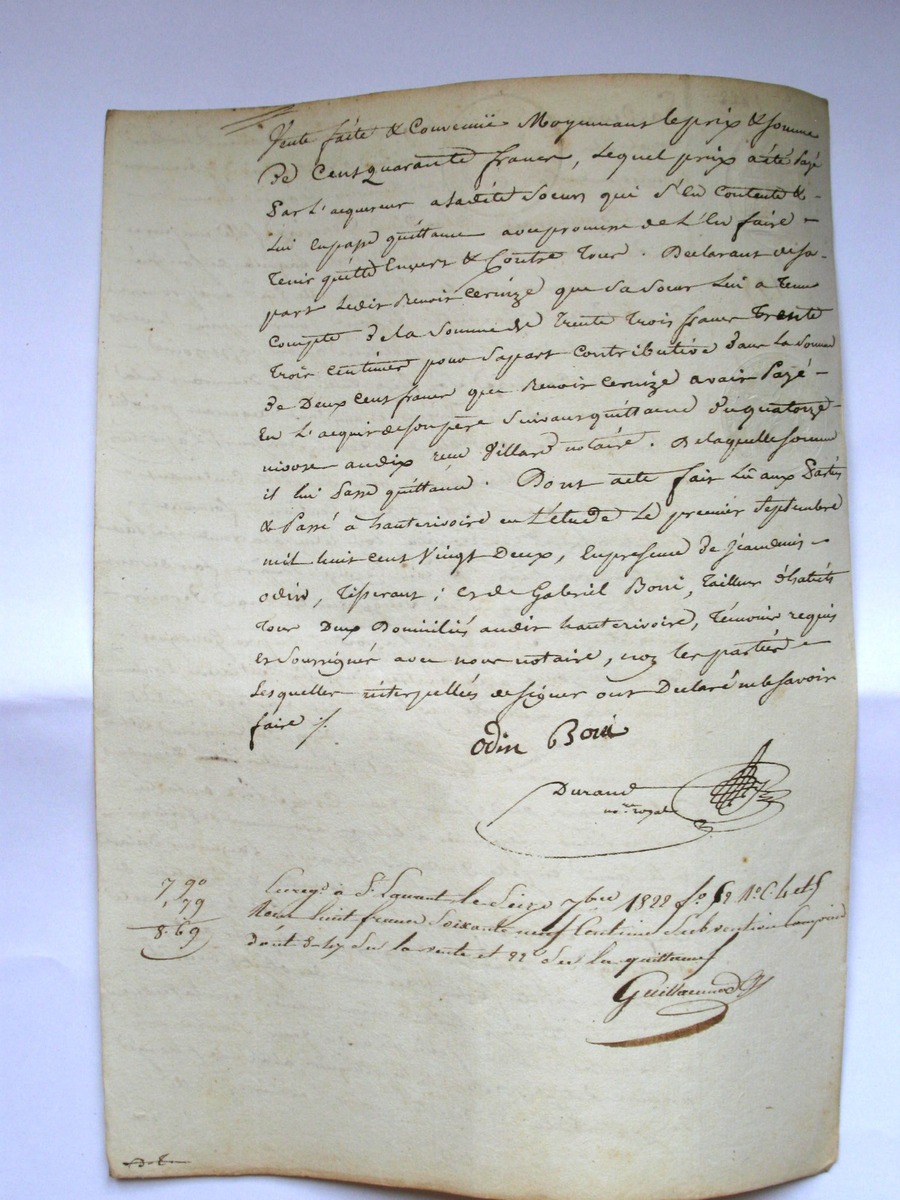 Vente faite & Convenuë Moyennant le prix & somme
de Cent quarante francs, lequel prix a été payé
par l'acquereur a ladite soeur qui s'en contente &
lui en passe quittance avec promesse de l'en faire
tenir quitte Envers & Contre Tous. Declarant de sa
part ledit Benoit cernize que sa soeur lui a tenu
compte de la somme de trente trois francs trente
trois centimes pour sa part contributive dans la somme
de Deux cent francs que Benoit cernize avait payé
en l'acquit de son père suivant quittance du quatorze
nivose an dix reçu Villard notaire. De laquelle somme
il lui passe quittance. Dont acte fait lû aux parties
& passé a hauterivoire en l'étude le premier septembre
mil huit cent vingt Deux, En presence de Jean denis
odin, tisserant ; et de Gabriel Boui, tailleur d'habits
tous Deux Domiciliés audit hauterivoire, témoins requis
et soussignés avec nous notaire, non les parties
lesquelles interpellées de signer ont Declaré ne le savoir
faire ./.
odin Boui
Durand
nore royal
7 90
. 79
8. 69
Enregé à St Laurent le Seize 7bre 1822 fo 52 Ro C. 4 et 5
Reçu huit francs Soixante neuf Centimes Subvention comprise
dont sur la vente et sur la quittance
Guillaumod